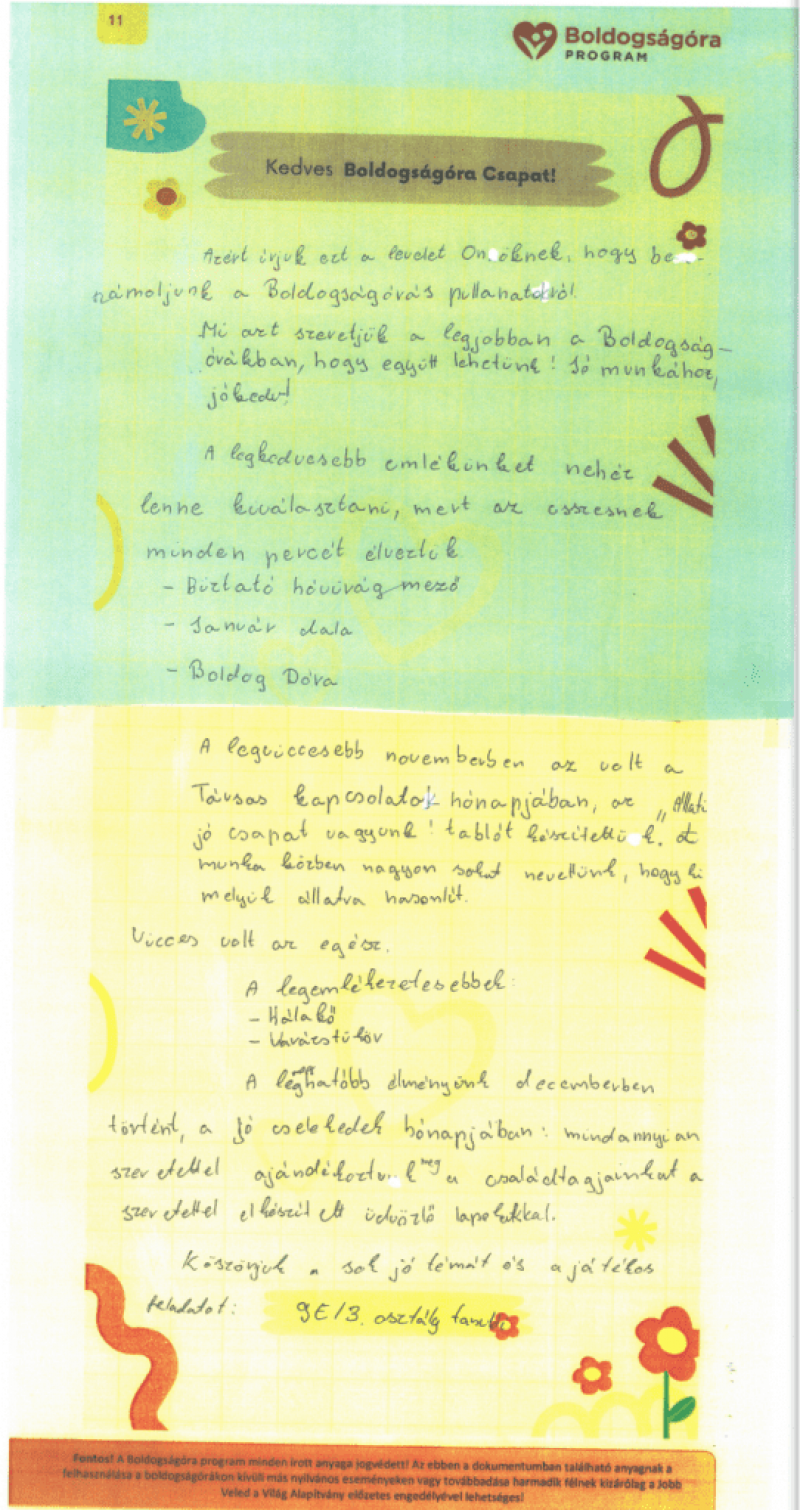 11
Boldogságóra
PROGRAM
Kedves Boldogságóra Csapat!
Azért írjuk ezt a levelet Önöknek, hogy be-
számoljunk a Boldogságórás pillanatokról!
Mi azt szeretjük a legjobban a Boldogság-
órákban, hogy együtt lehetünk! Jó munkához,
jókedv!
A legkedvesebb emlékünket nehéz
lenne kiválasztani, mert az összesnek
minden percét élveztük
- Bíztató hóvirág mező
- Január dala
- Boldog Dóra
A legviccesebb novemberben az volt a
Társas kapcsolatok hónapjában, az „Állati
jó csapat vagyunk! tablót készítettük. A
munka közben nagyon sokat nevettünk, hogy ki
melyik állatra hasonlít.
Vicces volt az egész.
A legemlékezetesebbek:
- Hálakő
- Varázstükör
A legmeghatóbb élményünk decemberben
történt, a Jó cselekedek hónapjában: mindannyian
szeretettel ajándékoztunk meg a családtagjainkat a
szeretettel elkészített üdvözlő lapokkal.
Köszönjük a sok jó témát és a játékos
feladatot:
9E/3. osztály
Fontos! A Boldogságóra program minden írott anyaga jogvédett! Az ebben a dokumentumban található anyagnak a
felhasználása a boldogságórákon kívüli más nyilvános eseményeken vagy továbbadása harmadik félnek kizárólag a Jobb
Veled a Világ Alapítvány előzetes engedélyével lehetséges!